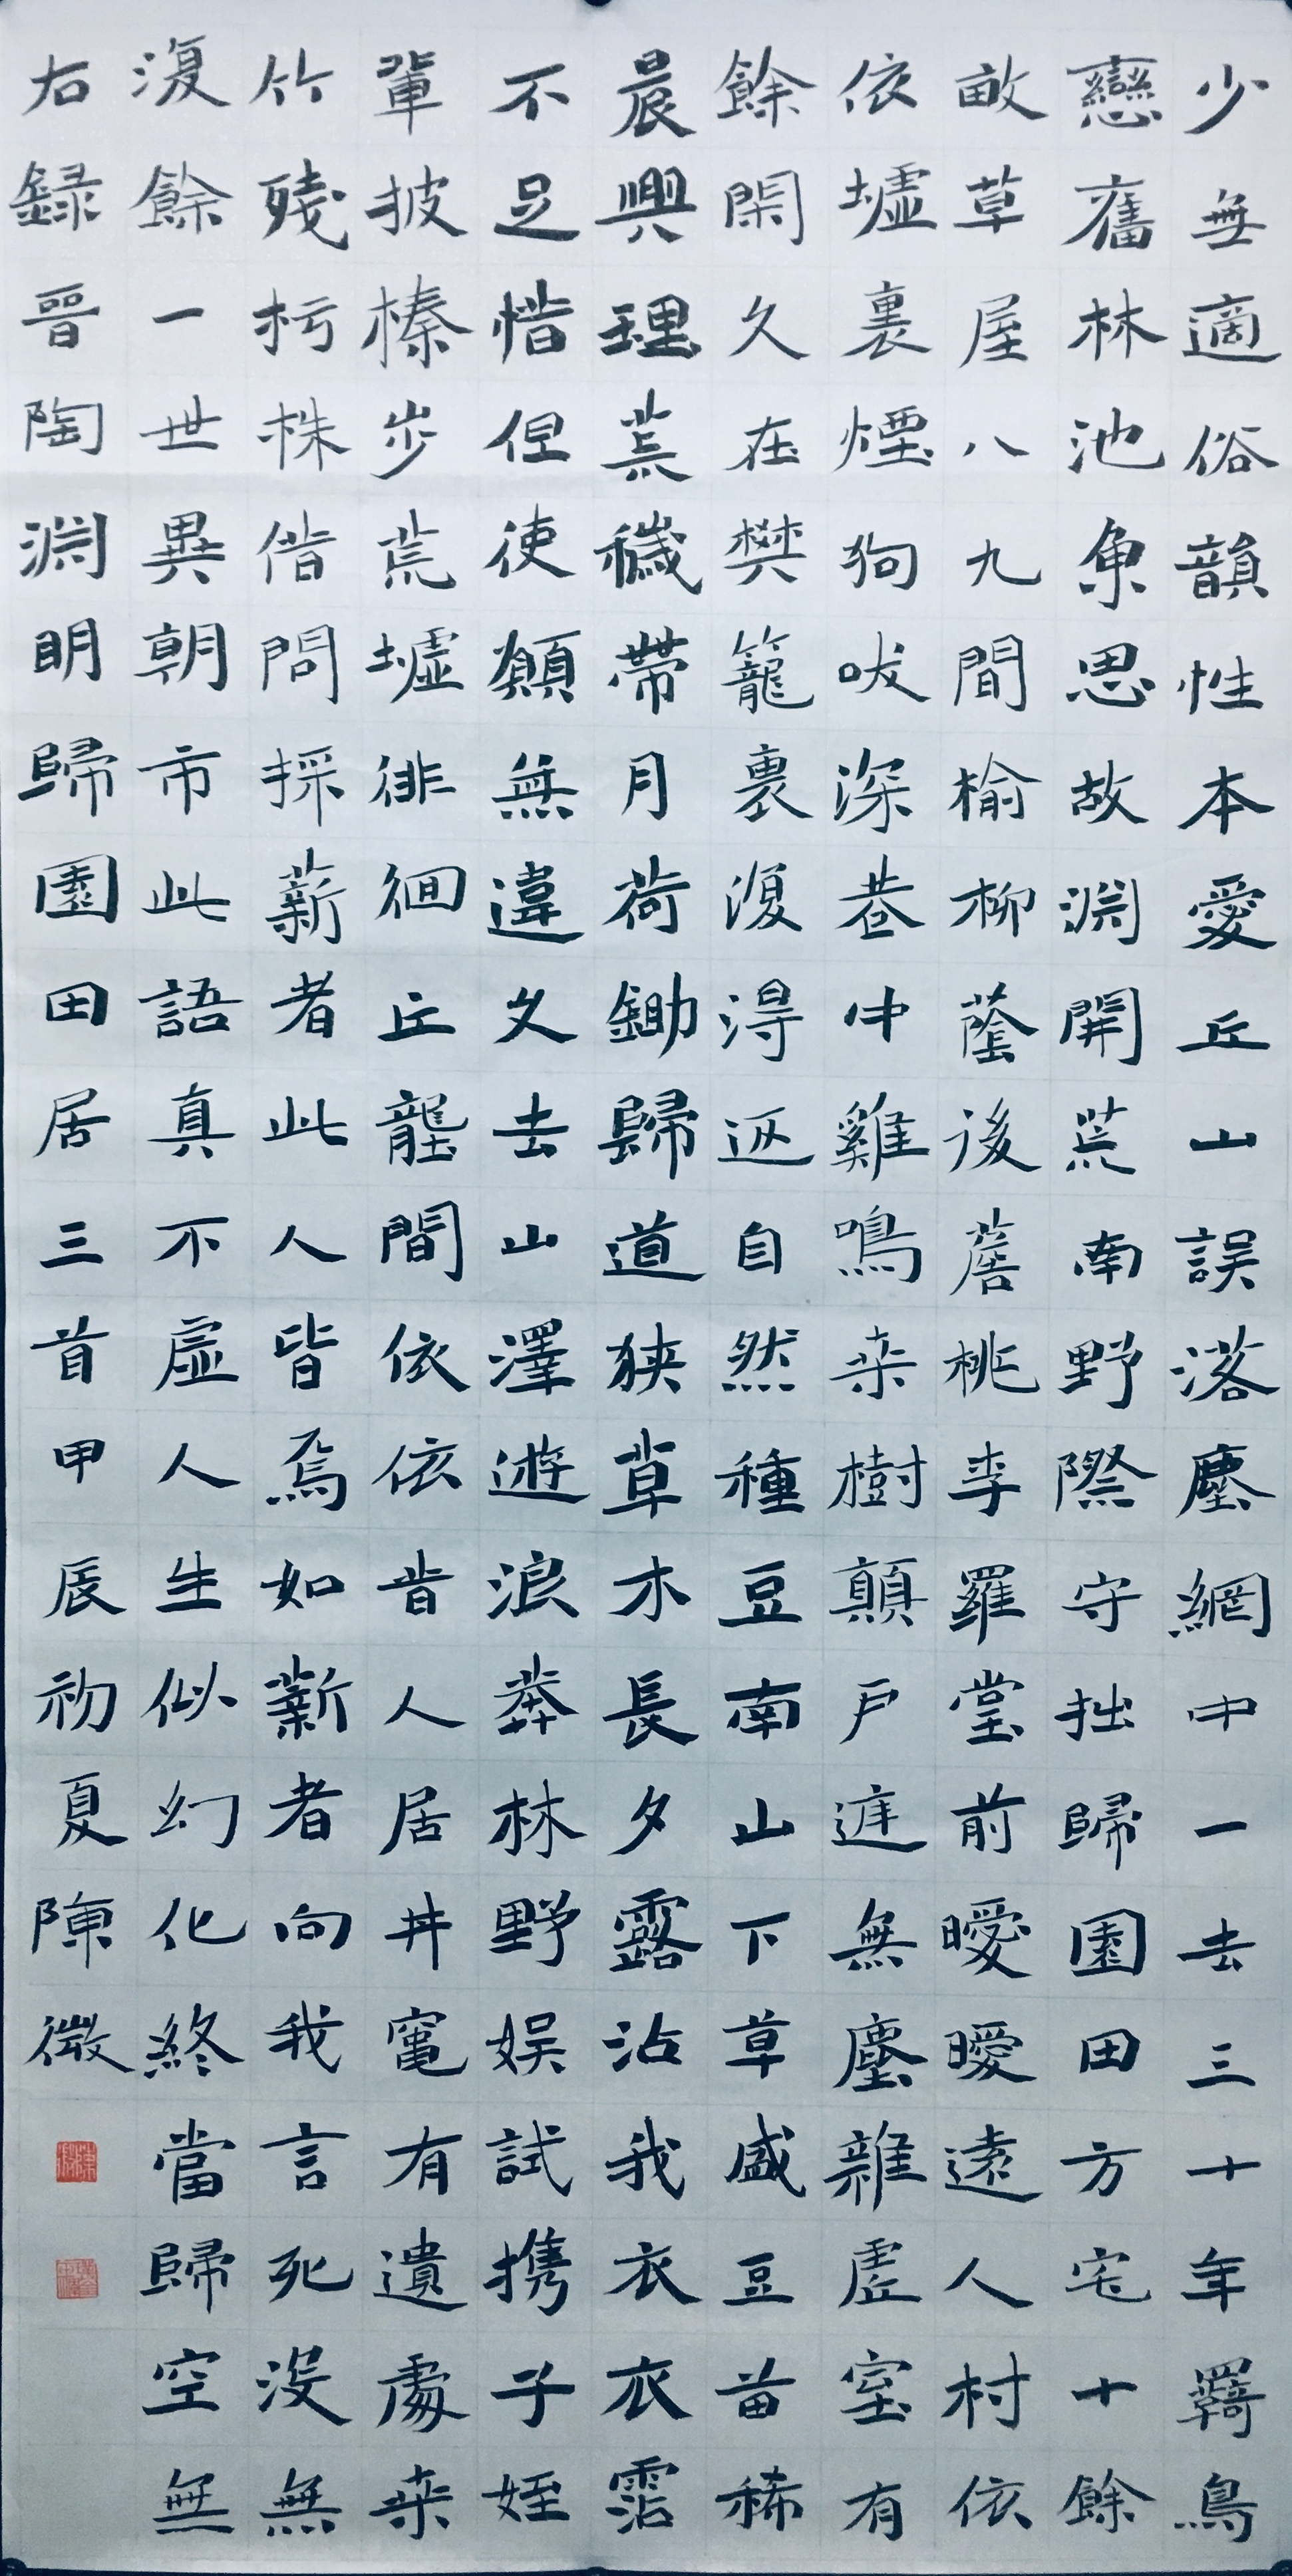 少無適俗韻性本愛丘山誤落塵網中一去三十年羈鳥
戀舊林池魚思故淵開荒南野際守拙歸園田方宅十餘
畝草屋八九間榆柳蔭後簷桃李羅堂前曖曖遠人村依
依墟裏煙狗吠深巷中雞鳴桑樹顛戶庭無塵雜虛室有
餘閑久在樊籠裏復得返自然種豆南山下草盛豆苗稀
晨興理荒穢帶月荷鋤歸道狹草木長夕露沾我衣衣霑
不足惜但使願無違久去山澤遊浪莽林野娛試攜子姪
輩披榛步荒墟徘徊丘壟間依依昔人居井竈有遺處桑
竹殘朽株借問採薪者此人皆焉如薪者向我言死沒無
復餘一世異朝市此語真不虛人生似幻化終當歸空無
右録晉陶淵明歸園田居三首甲辰初夏陳微